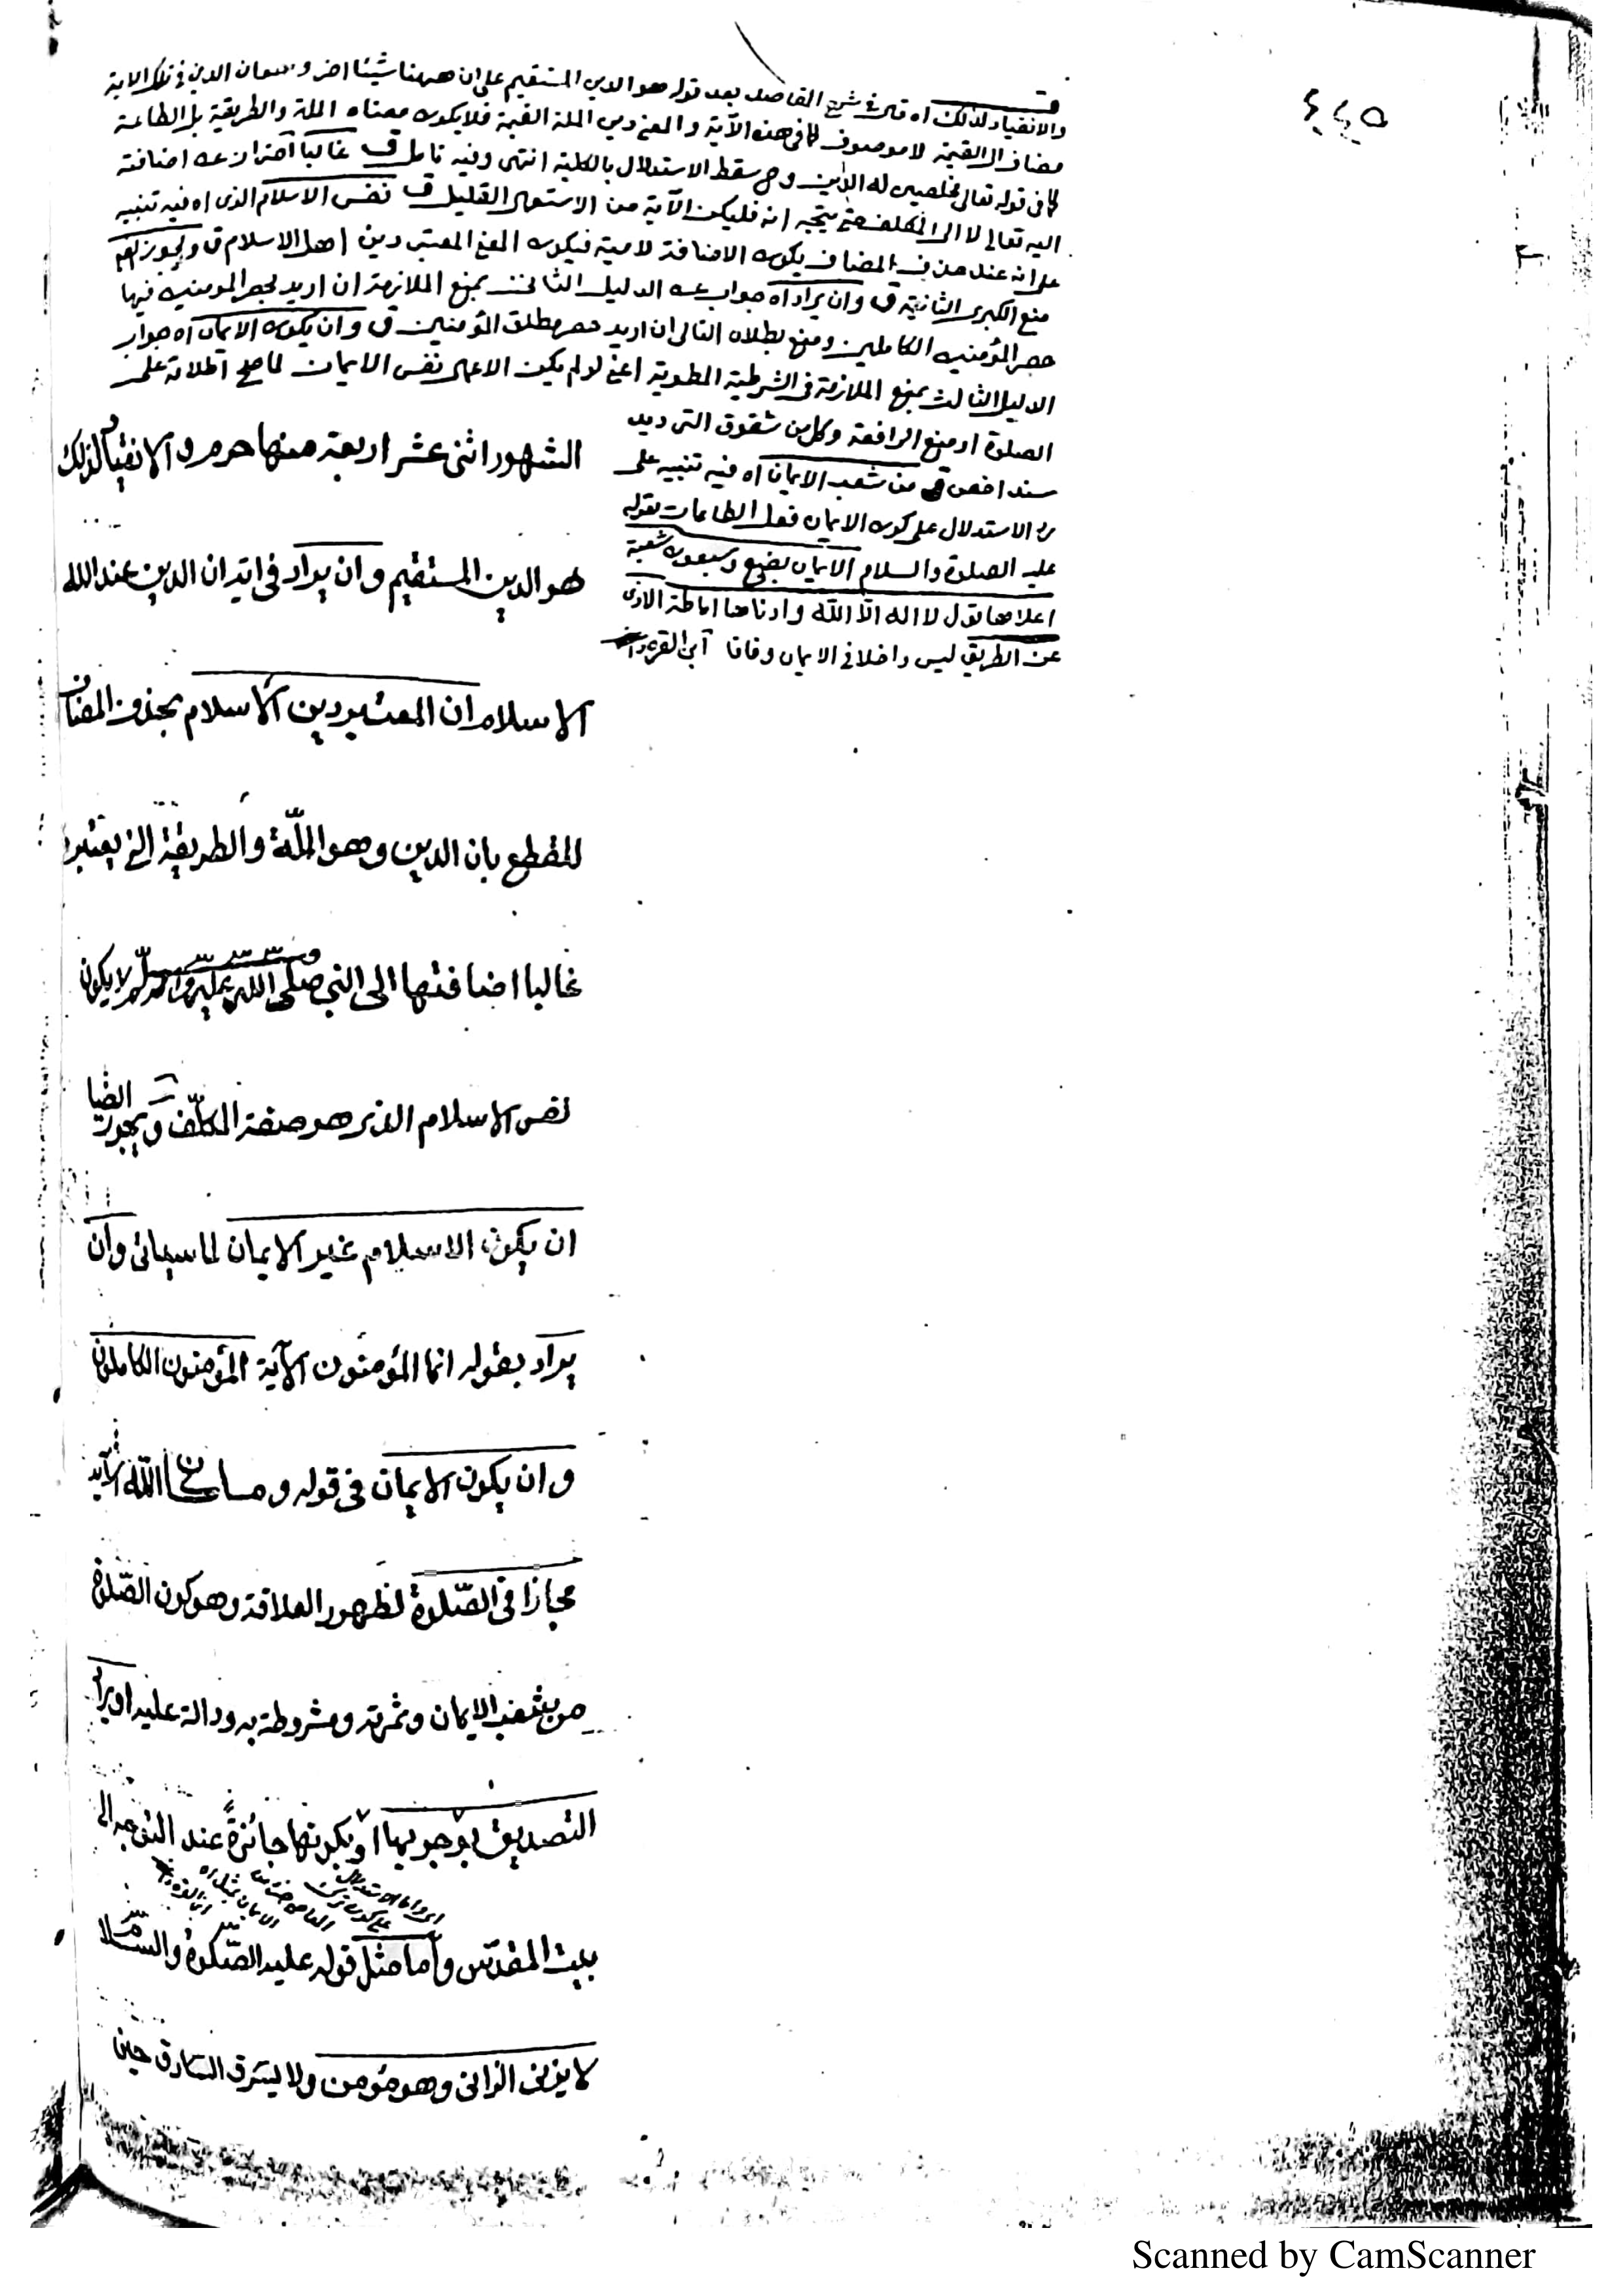 ٤٤٥
والانقياد لذلك اه قال في شرح المقاصد بعد قوله هو الدين المستقيم على ان ههنا شيئا اخر وهو ان الدين في تلك الاية
مضاف الى القيمة لا موصوف كما في هذه الآية والمعنى دين الملة القيمة فلا يكون معناه الملة والطريقة بل الطاعة
كما في قوله تعالى مخلصين له الدين وح سقط الاستدلال بالكلية انتهى وفيه تامل ق غالبا احتراز عن اضافته
اليه تعالى لا الى المكلف حتى يتجه انه فليكن الآية من الاستعمال القليل ق نفس الاسلام الذى اه فيه تنبيه
على انه عند حذف المضاف يكون الاضافة لامية فيكون المعنى المعتبر دين اهل الاسلام ق ويجوز ايضا
منع الكبرى الثانية ق وان يراد اه جواب عن الدليل الثاني بمنع الملازمة ان اريد بحصر المؤمنين فيها
حصر المؤمنين الكاملين ومنع بطلان التالى ان اريد حصر مطلق المؤمنين ق وان يكون الايمان اه جواب
الدليل الثالث بمنع الملازمة في الشرطية المطوية اعنى لو لم يكن الاعمال نفس الايمان لما صح اطلاقه على
الصلوة او منع الرافعة وكل من شقوق الترديد
سند اخص ق من شعب الايمان اه فيه تنبيه على
رد الاستدلال على كون الايمان فعل الطاعات بقوله
عليه الصلوة والسلام الايمان بضع وسبعون شعبة
اعلاها قول لا اله الا الله وادناها اماطة الاذى
عن الطريق ليس داخلا في الايمان وفاقا ابن القره داغى
الشهور اثنى عشر اربعة منها حرم والانقياد لذلك
هو الدين المستقيم وان يراد في اية ان الدين عند الله
الاسلام ان المعتبر دين الاسلام بحذف المضاف
للقطع بان الدين وهو الملّة والطريقة التى يعتبر
غالبا اضافتها الى النبي صلى الله عليه وسلم لا يكون
نفس الاسلام الذى هو صفة المكلّف ويجوز ايضا
ان يكون الاسلام غير الايمان لما سيأتى وان
يراد بقوله انما المؤمنون الآية المؤمنون الكاملون
وان يكون الايمان في قوله وما كان الله الآية
مجازا في الصّلوة لظهور العلاقة وهو كون الصّلوة
من شعب الايمان وثمرته ومشروطة به ودالة عليه او يراد
التصديق بوجوبها او بكونها جائزة عند التوجه الى
بيت المقدّس وأما مثل قوله عليه الصّلوة والسّلام
لا يزنى الزانى وهو مؤمن ولا يسرق السارق حين
Scanned by CamScanner